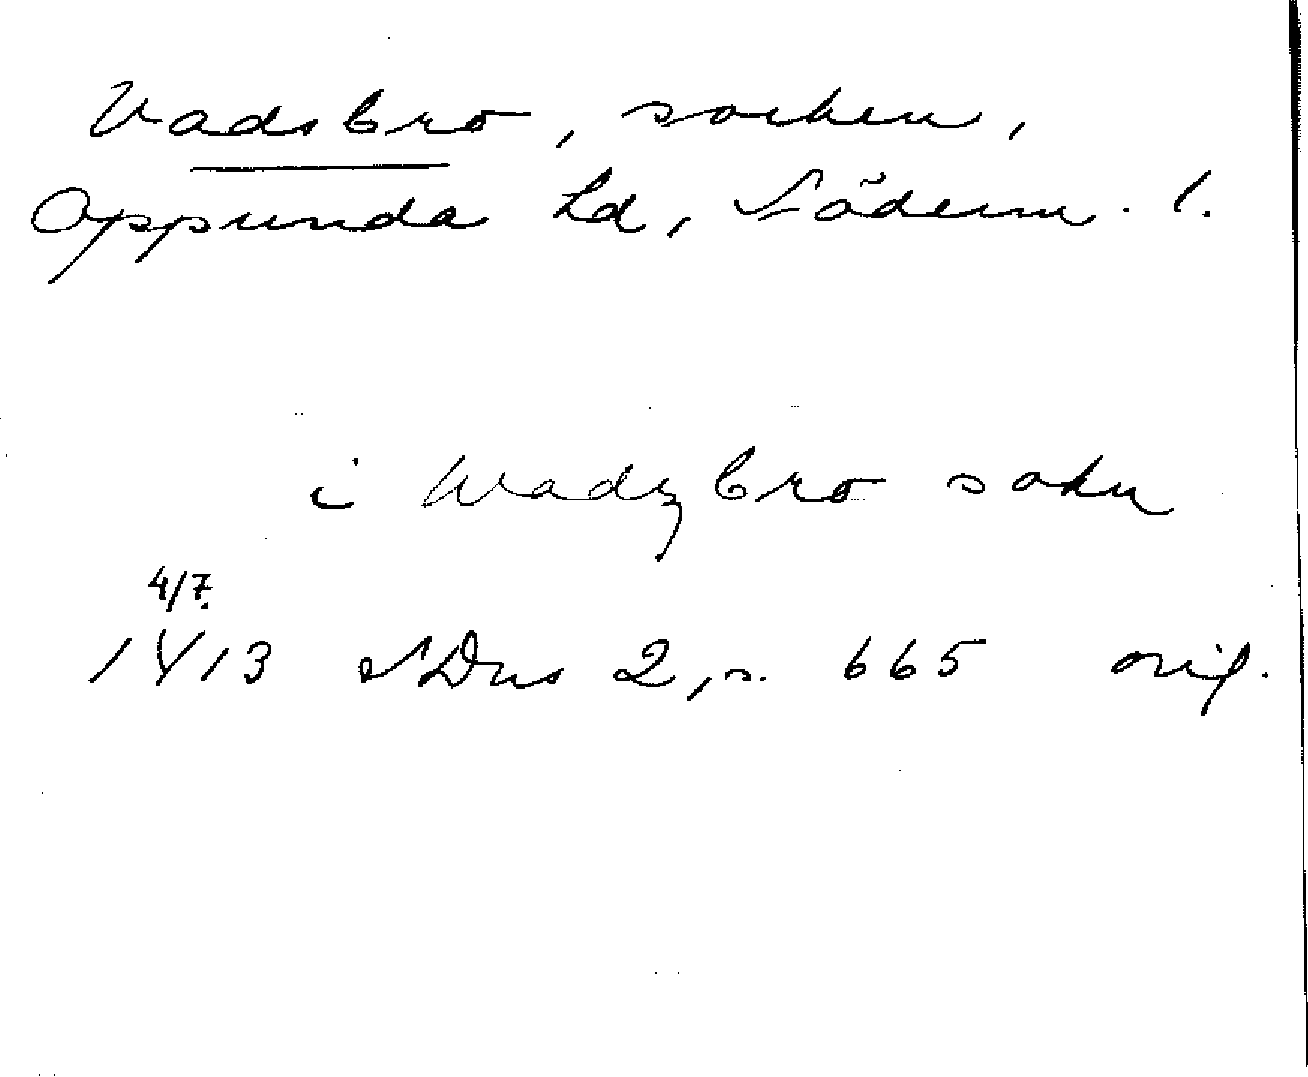 Vadsbro, socken,
Oppunda hd, Söderm. l.
i Wadzbro sokn
4/7.
1413 SDns 2, s. 665 orig.